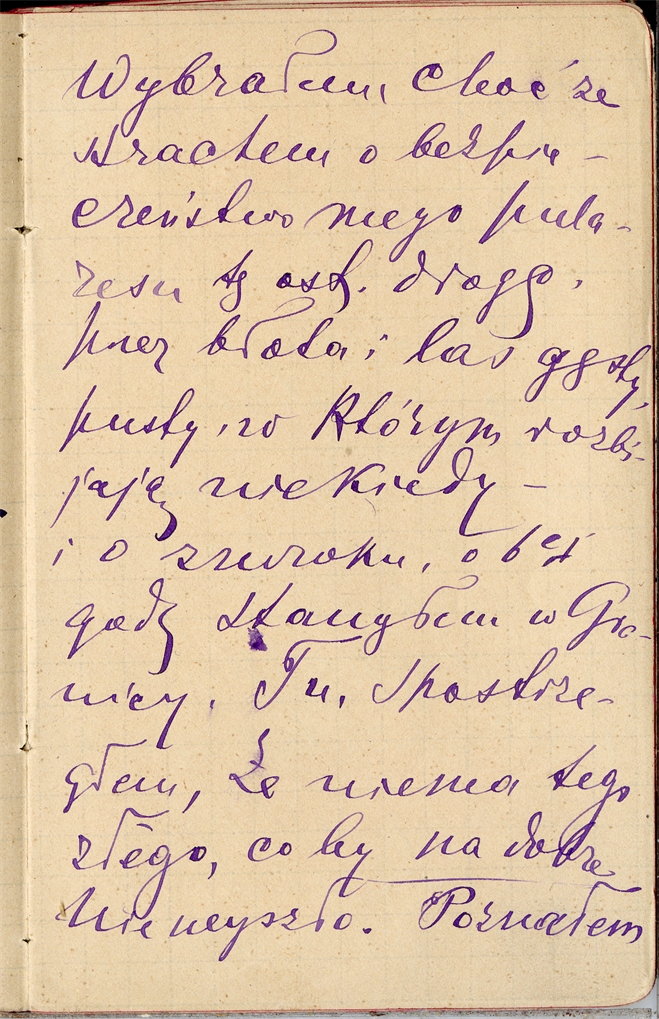 Wybrałem, choć ze
strachem o bezpie-
czeństwo mego pula-
resu tę ost. drogę,
przez błota i las gęsty,
pusty, w którym rozbi-
jają niekiedy –
i o zmroku, o 6ej
godz stanąłem w Gra-
nicy. Tu, spostrze-
głem, że niema tego
złego, coby na dobre
nie wyszło. Poznałem